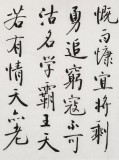 慨而慷宜将剩
勇追窮寇不可
沽名学霸王天
若有情天亦老